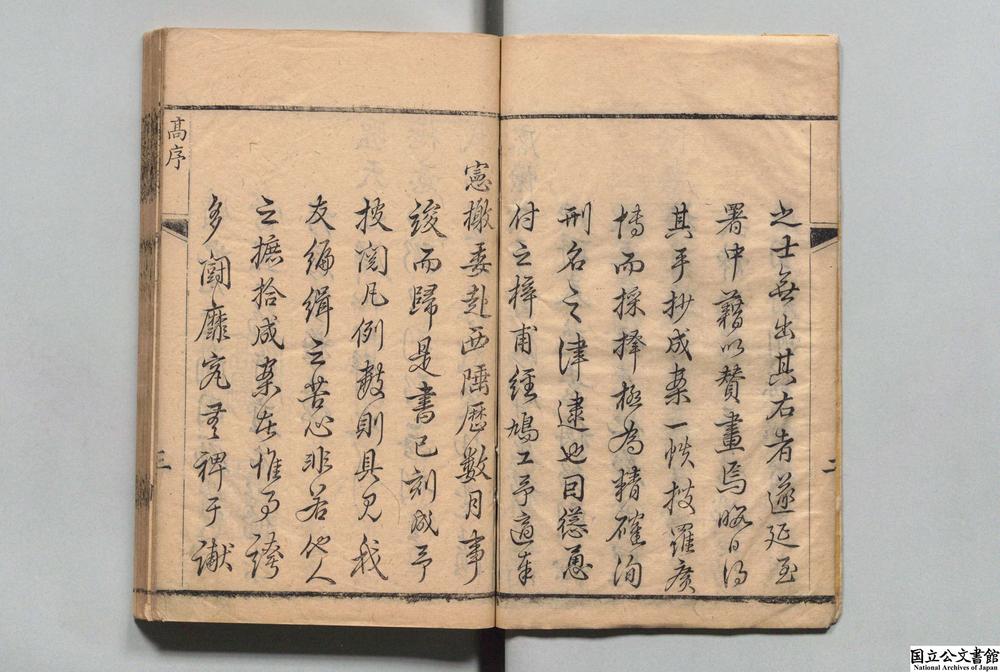 之士無出其右者遂延至
署中藉以贊畫焉暇日得
其手抄成案一帙披羅廣
博而採擇極為精確洵
刑名之津逮也因慫恿
付之梓甫經鳩工予適奉
二
憲檄委赴西陲歷數月事
竣而歸是書已刻成予
披閱凡例數則具見我
友編緝之苦心非若他人
之摭拾成案在惟多誇
多鬪靡究無裨于讞
高序
三
国立公文書館
National Archives of Japan